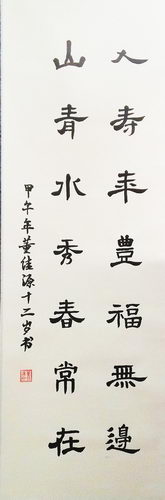 人寿年豊福無邊
山青水秀春常在
甲午年董佳源十二岁书